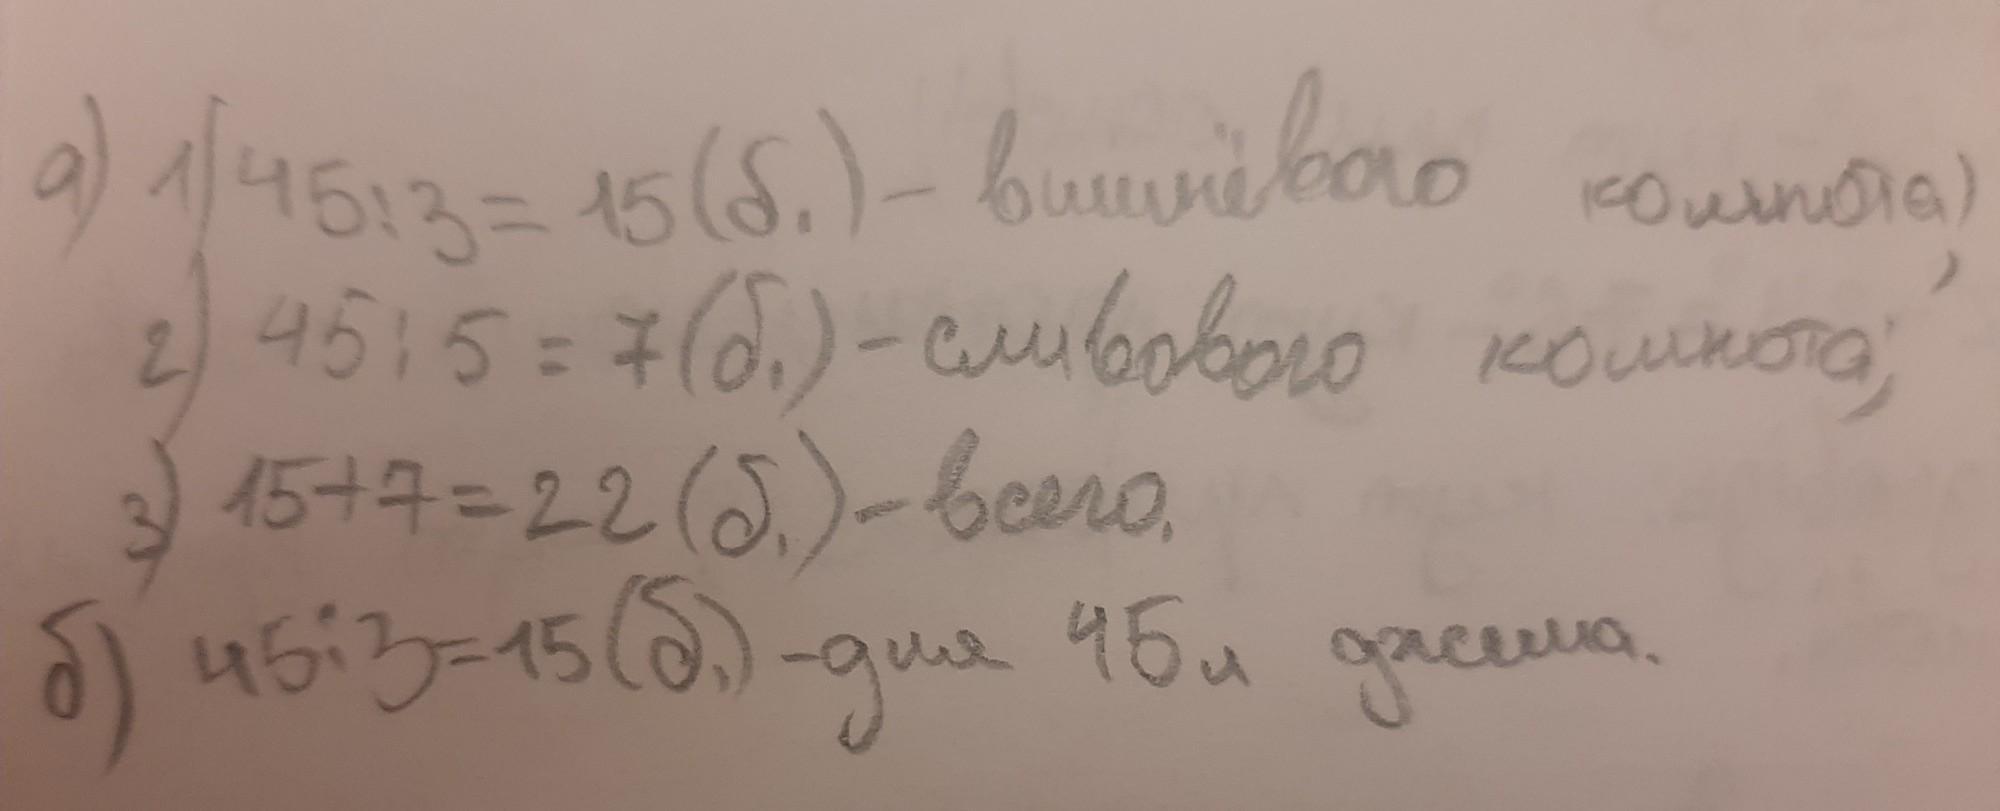 а) 1) 45:3=15(б.)-вишнёвого компота;
2) 45:5=7(б.)-сливового компота;
3) 15+7=22(б.)-всего.
б) 45:3=15(б.)-для 45л джема.